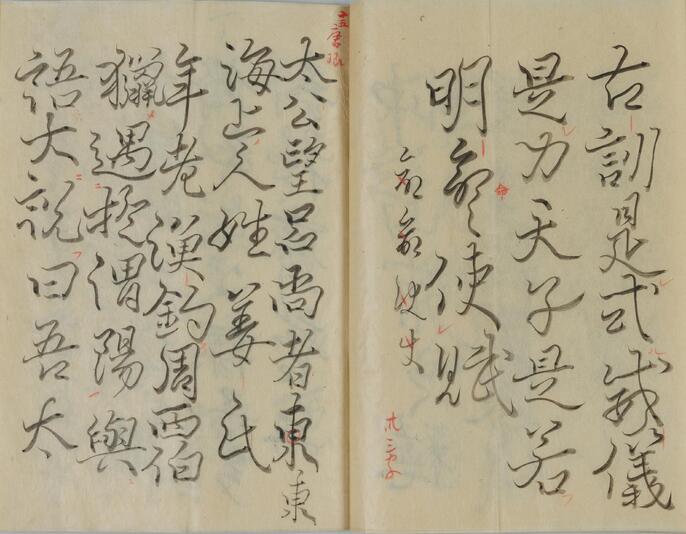 古訓是式威儀
是力天子是若
明命使賦
命命使使
太公望呂尚者東東
海上人姓姜氏
年老漁釣周西伯
獵遇於渭陽與
語大說曰吾太